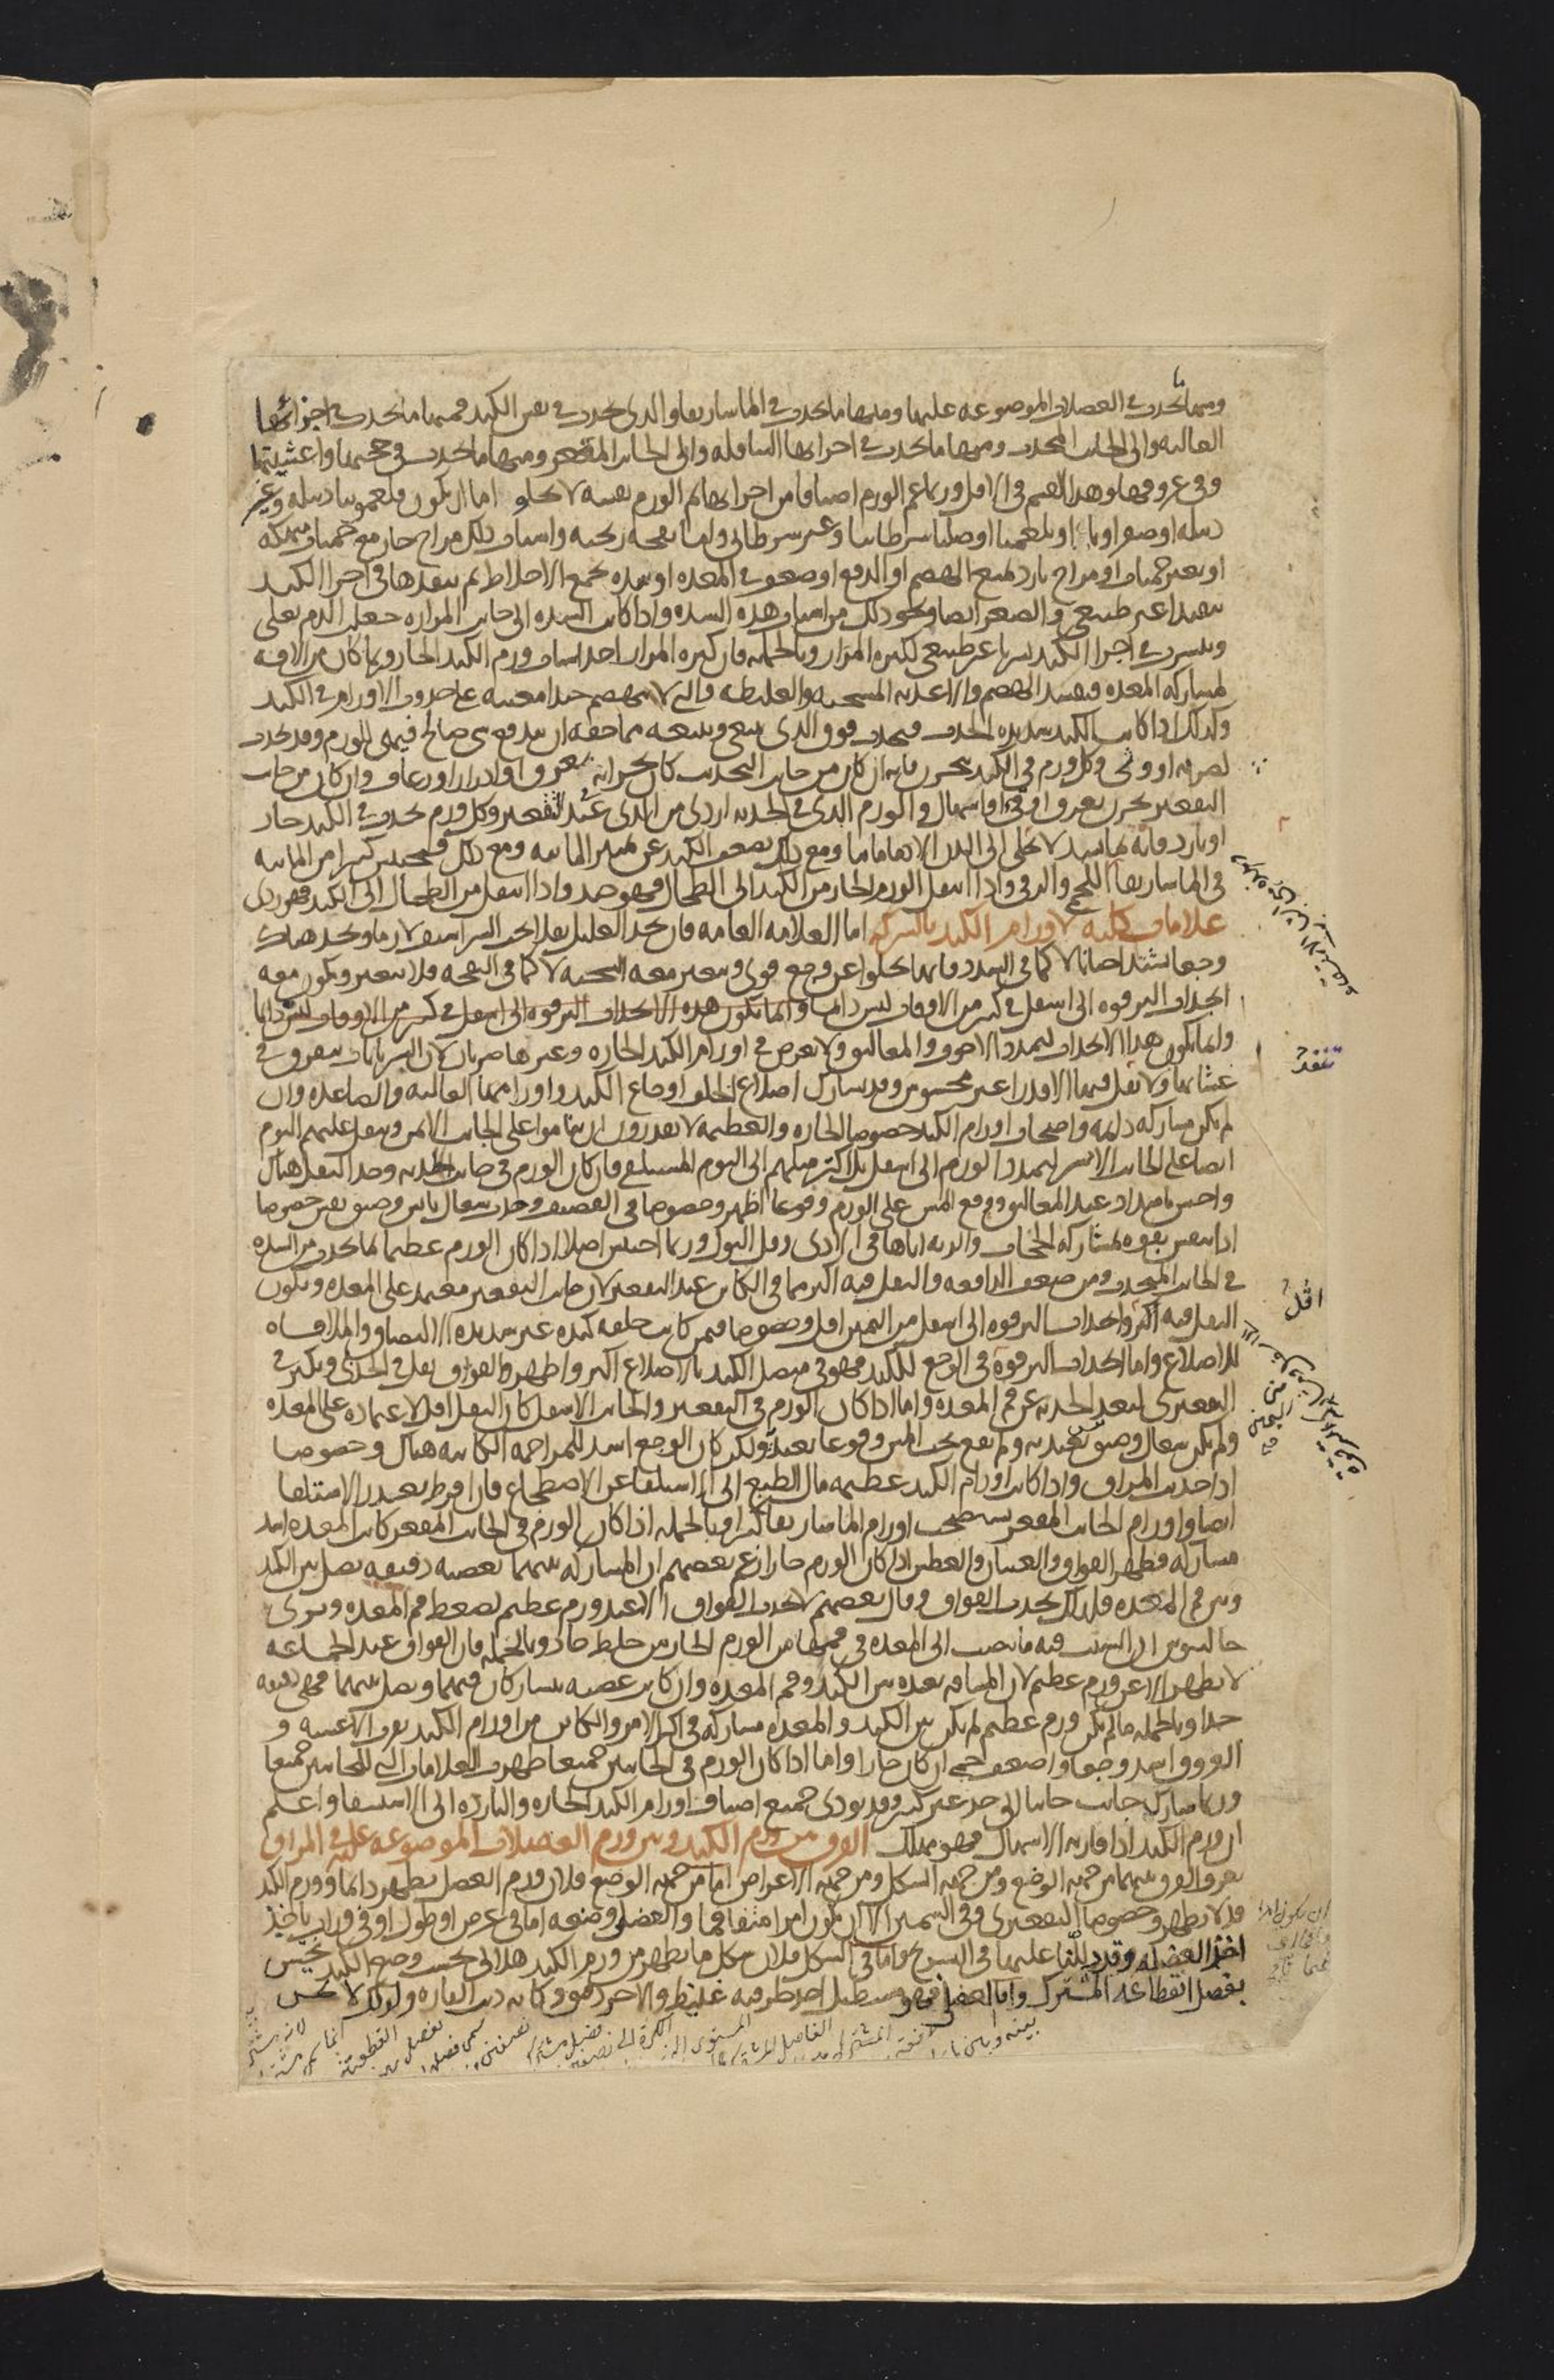 ومنها ما يحدث في العضلات الموضوعة عليها ومنها ما يحدث في الماساريقا والذي يحدث في نفس الكبد فمنها ما يحدث في اجزائها
العالية والى الجانب المحدب ومنها ما يحدث في اجزائها السافلة والى الجانب المقعر ومنها ما يحدث في حجبها واغشيتها
وفي عروقها وهذا القسم في الاقل وربما عم الورم اصنافا من اجزائها ثم الورم نفسه لا يخلو اما ان يكون فلغمونيا دبيلة وغير
دبيلة او صفراويا او بلغميا او صلبا سرطانيا وغير سرطاني واما نفخة ريحية واسباب ذلك مزاج حار مع حميات منهكة
او بغير حميات او مزاج بارد لمنع الهضم او الدفع او ضعف في المعدة او سدة تجمع الاخلاط ثم تنفذها في اجزا الكبد
تنفيذا غير طبيعي والصغر ايضا ونحو ذلك من اسباب هذه السدة واذا كانت السدة الى جانب المرارة جعلت الدم يغلي
وينتشر في اجزا الكبد تشربا غير طبيعي لكثرة المرار وبالجملة فان كثرة المرار احد اسباب ورم الكبد الحار وربما كان من الافة
لمشاركة المعدة فيفسد الهضم والاغذية المسخنة والغليظة والتي لا تنهضم جيدا معينة على حدوث الاورام في الكبد
وكذلك اذا كانت الكبد شديدة الجذب فيجذب فوق الذي ينبغي وينبعه مما حقه ان يندفع شي صالح فيمتلي للورم وقد يحدث
لضربة او وثي وكل ورم في الكبد يبحرن فانه ان كان من جانب التحديب كان بحرانه بعرق او ادرار او رعاف وان كان من جانب
التقعير بحرن بعرق او قي او اسهال والورم الذي في الحدبة اردى من الذي عند التقعير وكل ورم يحدث في الكبد حار
او بارد فانه بما يسد لا يخلي الى البدن الا دما مائيا ومع ذلك يضعف الكبد عن تمييز المائية ومع ذلك فيحتبس كثيرا من المائية
في الماساريقا اللحمي والزقي واذا انتقل الورم الحار من الكبد الى الطحال فهو جيد واذا انتقل من الطحال الى الكبد فهو ردي
علامات كلية لاورام الكبد بالشركة اما العلامة العامة فان يجد العليل ثقلا تحت الشراسيف لازما ويجد هناك
وجعا يشتد احيانا لا كما في السدد فانها تخلوا عن وجع قوي ويتغير معه السحنة لا كما في النفخة فلا يتغير ويكون معه
انجذاب الترقوة الى اسفل في كثير من الاوقات ليس دايما وانما يكون هذه الانجذاب الترقوة الى اسفل في كثير من الاوقات ليس دايما
وانما يكون هذا الانجذاب لتمدد الاجوف والمعاليق ولا يعرض في اورام الكبد الحارة وغيرها ضربان لان الشريانات يتفرق في
غشائها ولا تنفذ فيها الا قدرا غير محسوس وقد يشارك اضلاع الخلف اوجاع الكبد واورامها العالية والصاعدة وان
لم يكن مشاركة دائمة واصحاب اورام الكبد خصوصا الحارة والعظيمة لا يقدرون ان يناموا على الجانب الايمن ويثقل عليهم النوم
ايضا على الجانب الايسر لتمدد الورم الى اسفل بل اكثر ميلهم الى النوم المستلقي فان كان الورم في جانب الحدبة وجد الثقل هناك
واحس بامتداد عند المعاليق ووقع المس على الورم وقوعا اظهر وخصوصا في القضيف وحدث سعال يابس وضيق نفس خصوصا
اذا تنفس بقوة لمشاركة الحجاب والرية اياها في الاذى وقل البول وربما احتبس اصلا اذا كان الورم عظيما لما يحدث من السدة
في الجانب المحدب ومن ضعف الدافعة والثقل فيه اكثر مما في الكاين عند التقعير لان جانب التقعير معتمد على المعدة ويكون
الثقل فيه اكثر وانجذاب الترقوة الى اسفل من اليمين اقل وخصوصا فيمن كانت خلقة كبده غير شديدة الالتصاق والملاقاة
للاضلاع واما انجذاب الترقوة في الوجع للكبد فهو في متصل الكبد بالاضلاع اكثر واظهر والفواق يقل في الحدبي ويكثر في
التقعيري لبعد الحدبة عن فم المعدة واما اذا كان الورم في التقعير والجانب الاسفل كان الثقل اقل لاعتماده على المعدة
ولم يكن سعال وضيق نفس يعتد به ولم يقع تحت المس وقوعا يعتد به ولكن كان الوجع اشد للمزاحمة الكائنة هناك وخصوصا
اذا جذبت المراق واذا كانت اورام الكبد عظيمة مال الطبع الى الاستلقا عن الاضطجاع فان افرط تعذر الاستلقا
ايضا واورام الجانب المقعر يستصحب اورام الماساريقا كثيرا وبالجملة اذا كان الورم في الجانب المقعر كانت المعدة اشد
مشاركة فظهر الفواق والغثيان والعطش اذا كان الورم حارا زعم بعضهم ان المشاركة بينهما بعصبة دقيقة تصل بين الكبد
وبين فم المعدة فلذلك يحدث الفواق وقال بعضهم لا يحدث الفواق الا عند ورم عظيم لضغط فم المعدة ويرى
جالينوس ان السبب فيه ما ينصب الى المعدة في فمها من الورم الحار من خلط حاد وبالجملة فان الفواق عند الجماعة
لا يظهر الا عن ورم عظيم لان المسافة بعيدة بين الكبد وفم المعدة وان كانت عصبة يتشاركان فيها ويصل بينهما فهي دقيقة
جدا وبالجملة ما لم يكن ورم عظيم لم يكن بين الكبد والمعدة مشاركة في اكثر الامر والكاين من اورام الكبد بقرب الاغشية و
العروق اشد وجعا واضعف حمى ان كان حارا واما اذا كان الورم في الجانبين جميعا ظهرت العلامات التي للجانبين جميعا
وربما شارك جانب جانبا الى حد غير كثير وقد يؤدي جميع اصناف اورام الكبد الحارة والباردة الى الاستسقا واعلم
ان ورم الكبد اذا قارنه الاسهال فهو مهلك الفرق بين ورم الكبد وبين ورم العضلات الموضوعة عليه في المراق
يعرف الفرق بينهما من جهة الوضع ومن جهة الشكل ومن جهة الاعراض اما من جهة الوضع فلان ورم العضل يظهر دائما وورم الكبد
قد لا يظهر وخصوصا التقعيري وفي السمين الا ان يكون امرا متفاقما والعضلي وضعه اما في عرض او طول او في وراب ياخذ
اخذ العضلة وقد دللنا عليها في التشريح واما في الشكل فلان شكل ما يظهر من ورم الكبد هلالي بحسب وضع الكبد يحس
بفصل انقطاعه المشترك واما العضلي فهو مستطيل احد طرفيه غليظ والاخر دقيق وكانه ذنب الفارة ولذلك لا يحس
تنفذ
اقل